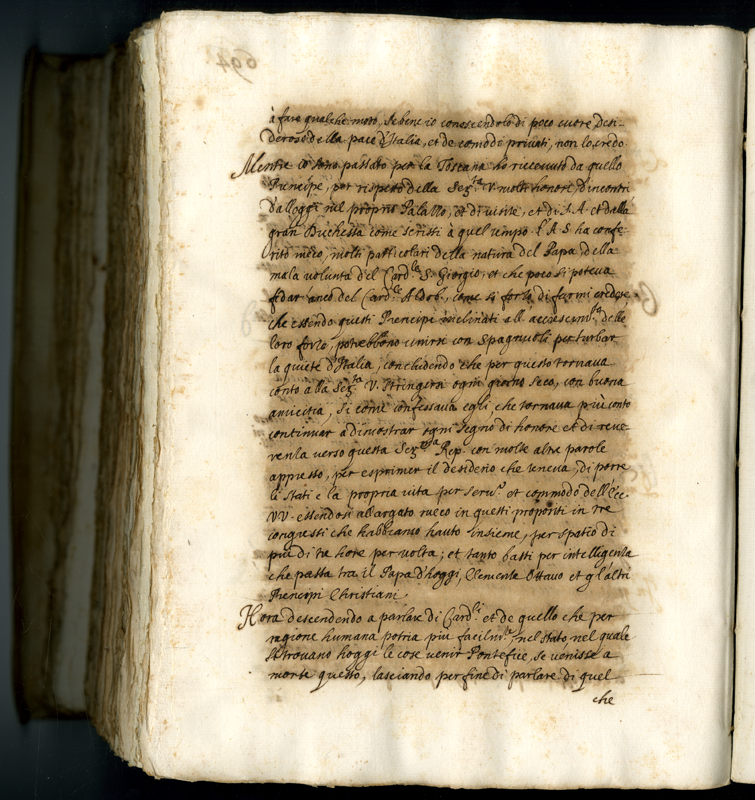 à fare qualche moto, se bene io conoscendolo di poco cuore desi-
deroso della pace d'Italia, et de comodi privati, non lo credo
Mentre io sono passato per la Toscana hò riceevuto da quello
Prencipe, per rispetto della Ser.ta V. molti honori d'incontri
d'alloggi nel proprio Palazzo, et di visite, et di S.A. et dalla
gran Duchessa come scrissi à quel tempo. l'A.S. ha confe-
rito meco, molti particolari della natura del Papa, della
mala volunta del Card.le S. Giorgio, et che poco si poteva
fidar anco del Card.le Aldob.º, come si forzò di farmi credere,
che essendo questi Prencipi inclinati all' accrescim.to delle
loro forze, potrebbono unirsi con Spagnuoli perturbar
la quiete d'Italia, conchidendo che per questo tornava
conto à la Ser.ta V. stringersi ogni giorno seco, con buona
amicitia, si come confessava egli, che tornava più conto
continuar à dimostrar ogni segno di honore et di reve-
renza verso questa Ser.ma Rep. con molte altre parole
appresso, per esprimer il desiderio che teneva, di porre
li stati e la propria vita per serv.º et commodo dell' Ecc.
VV. essendosi allargato meco in questi propositi in tre
congressi che habbiamo hauto insieme, per spatio di
più di tre hore per volta; et tanto basti per intelligenza
che passa tra il Papa d'hoggi, Clemente Ottavo et gl'altri
Prencipi Christiani.
Hora descendendo a parlar di Card.li et de quello che per
ragione humana potria piu facilm.te nel stato nel quale
si trovano hoggi le cose venir Pontefice, se venisse a
morte questo, lasciando per fine di parlare di quel
che
694